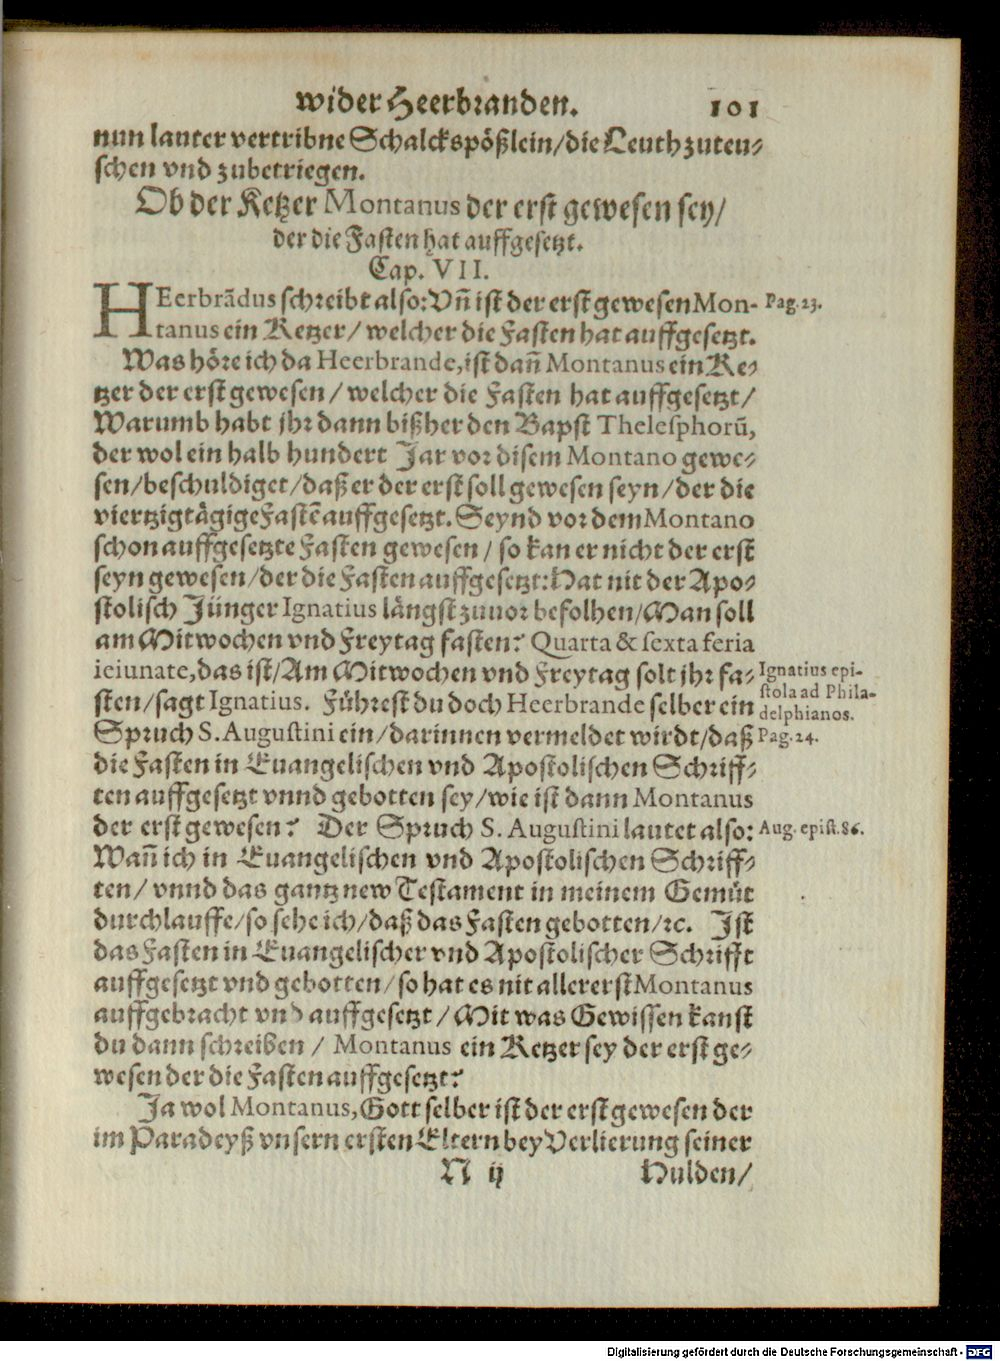 wider Heerbranden. 101
nun lauter vertribne Schalckspößlein/die Leuth zuteu-
schen vnd zubetriegen.
Ob der Ketzer Montanus der erst gewesen sey/
der die Fasten hat auffgesetzt.
Cap. VII.
HEerbrãdus schreibt also: Vñ ist der erst gewesen Mon- Pag. 23.
tanus ein Ketzer/ welcher die Fasten hat auffgesetzt.
Was höre ich da Heerbrande, ist dañ Montanus ein Ke-
tzer der erst gewesen / welcher die Fasten hat auffgesetzt/
Warumb habt jhr dann bißher den Bapst Thelesphorũ,
der wol ein halb hundert Jar vor disem Montano gewe-
sen/beschuldiget/daß er der erst soll gewesen seyn/der die
viertzigtägige Fastẽ auffgesetzt. Seynd vor dem Montano
schon auffgesetzte Fasten gewesen / so kan er nicht der erst
seyn gewesen/der die Fasten auffgesetzt: Hat nit der Apo-
stolisch Jünger Ignatius längst zuuor befolhen/Man soll
am Mitwochen vnd Freytag fasten? Quarta & sexta feria
ieiunate, das ist/Am Mitwochen vnd Freytag solt jhr fa- Ignatius epi-
sten/sagt Ignatius. Führest du doch Heerbrande selber ein stola ad Phila-
delphianos.
Spruch S. Augustini ein/darinnen vermeldet wirdt/daß Pag. 24.
die Fasten in Euangelischen vnd Apostolischen Schriff-
ten auffgesetzt vnnd gebotten sey/wie ist dann Montanus
der erst gewesen? Der Spruch S. Augustini lautet also: Aug. epist. 86.
Wañ ich in Euangelischen vnd Apostolischen Schriff-
ten/ vnnd das gantz new Testament in meinem Gemüt
durchlauffe/so sehe ich/daß das Fasten gebotten/ꝛc. Ist
das Fasten in Euangelischer vnd Apostolischer Schrifft
auffgesetzt vnd gebotten/so hat es nit allererst Montanus
auffgebracht vnd auffgesetzt / Mit was Gewissen kanst
du dann schreiben / Montanus ein Ketzer sey der erst ge-
wesen der die Fasten auffgesetzt?
Ja wol Montanus, Gott selber ist der erst gewesen der
im Paradeyß vnsern ersten Eltern bey Verlierung seiner
N ij Hulden/
Digitalisierung gefördert durch die Deutsche Forschungsgemeinschaft - DFG